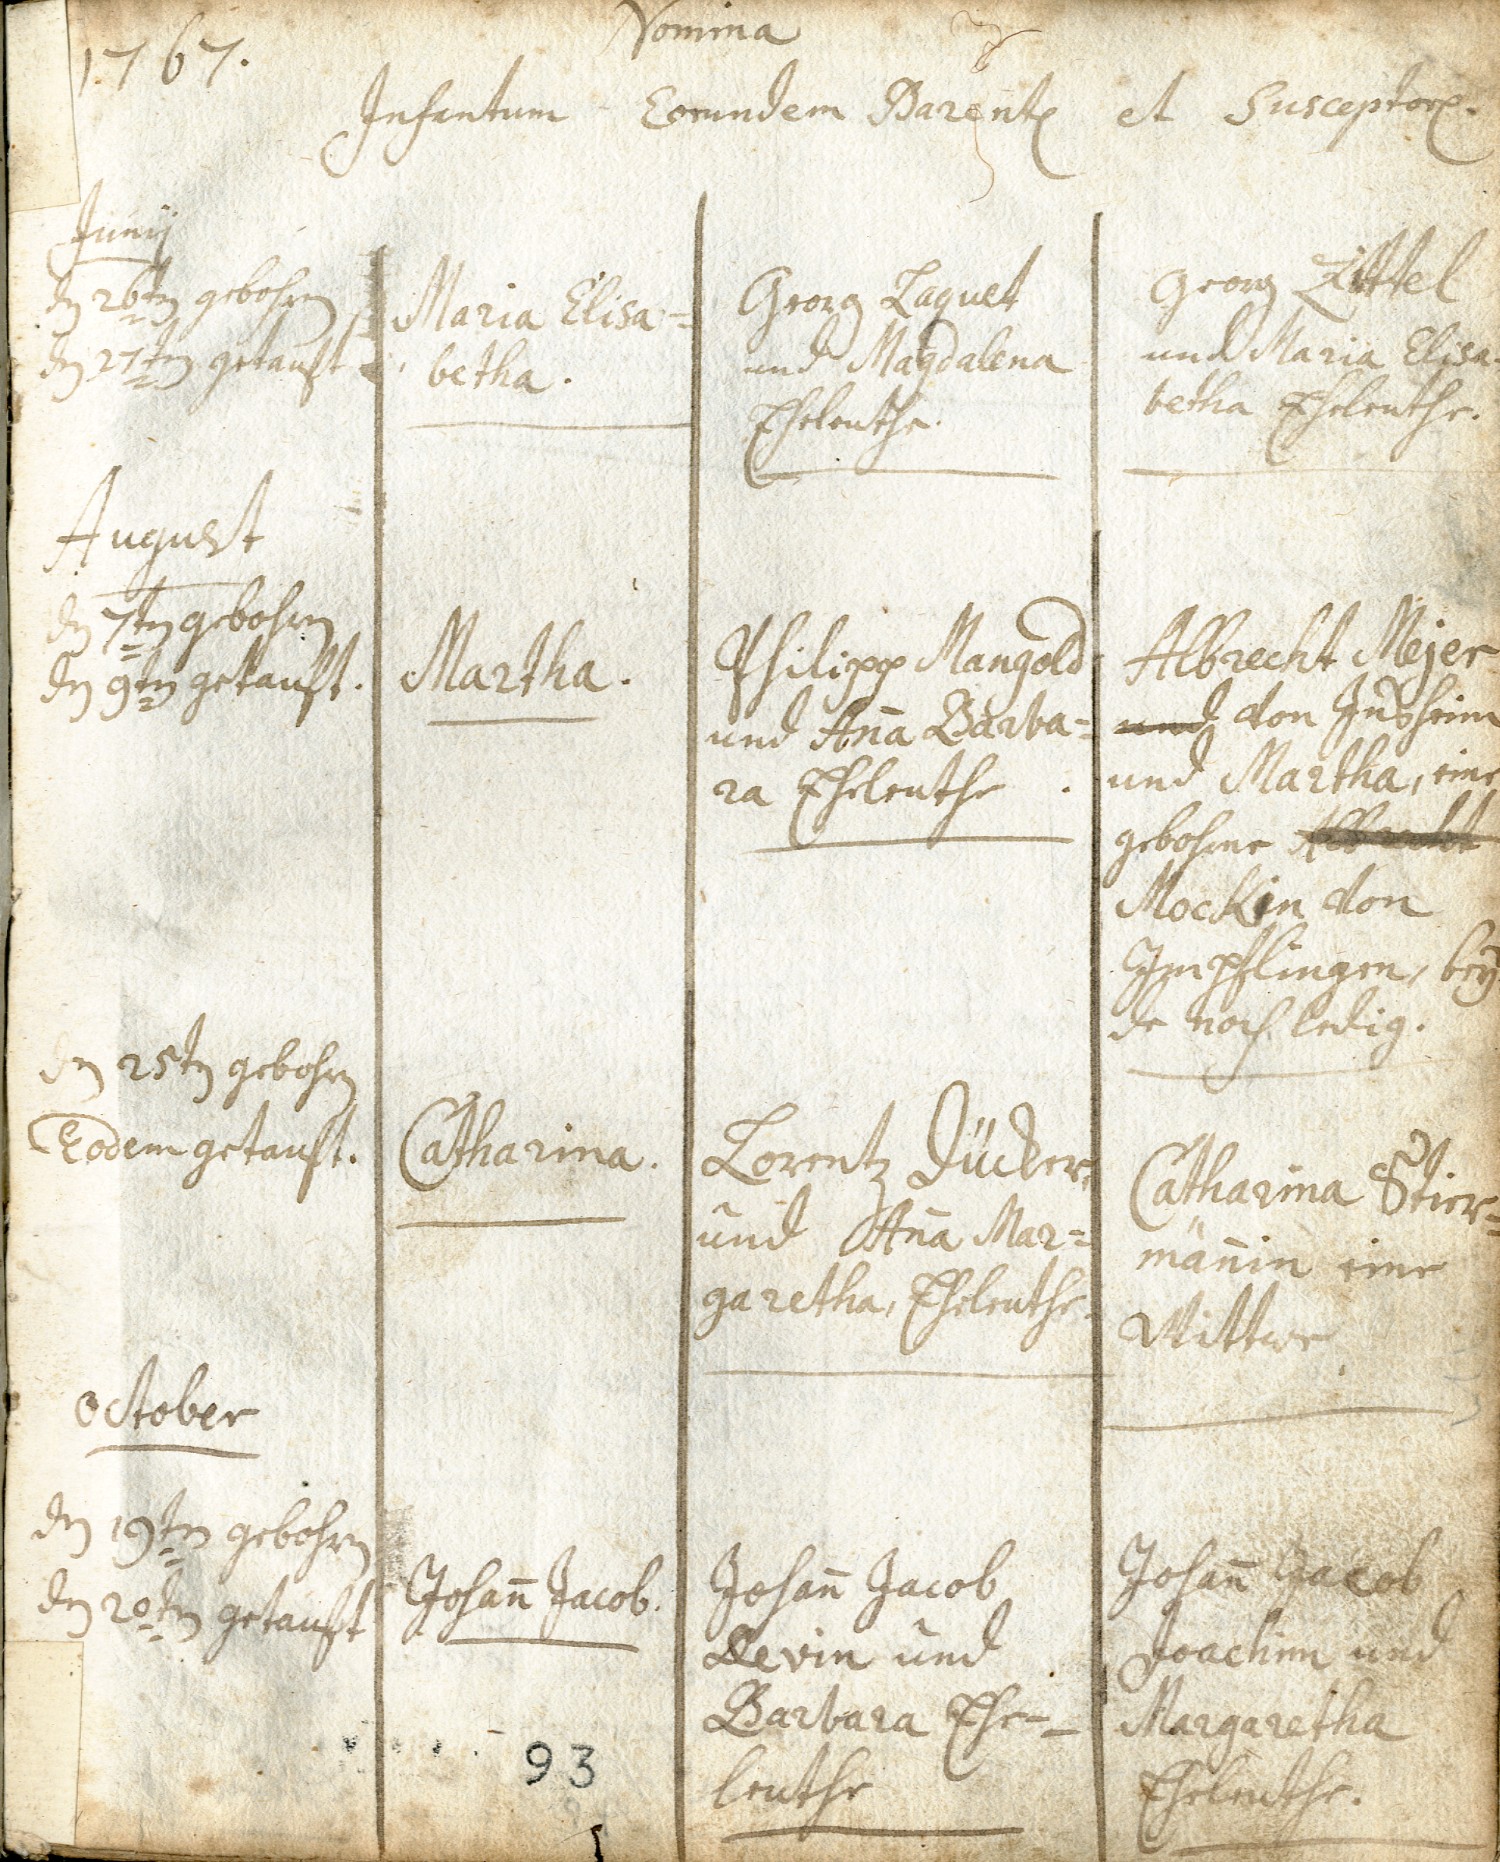 1767.
Nomina
Infantum Eorundem Parent et Susceptor.
Junij
dn 26tn gebohrn
dn 27tn getauft
Maria Elisa=
betha.
Georg Laquet
und Magdalena
Eheleuthe.
Georg Zittel
und Maria Elisa-
betha Eheleuthe.
August
dn 7tn gebohrn
dn 9tn getauft.
Martha.
Philipp Mangold
und Aña Barba=
ra Eheleuthe.
Albrecht Mejer
und von Insheim
und Martha, eine
gebohrne Albrecht
Mockin von
Impflingen, bey
de noch ledig.
dn 25tn gebohrn
Eodem getauft.
Catharina.
Lorentz Dücker,
und Aña Mar=
garetha, Eheleuthe.
Catharina Stier=
mäñin eine
Wittwe
October
dn 19tn gebohrn
dn 20tn getauft
Johañ Jacob.
Johañ Jacob
Levin und
Barbara Ehe=
leuthe
Johañ Jacob
Joachim und
Margaretha
Eheleuthe.
93